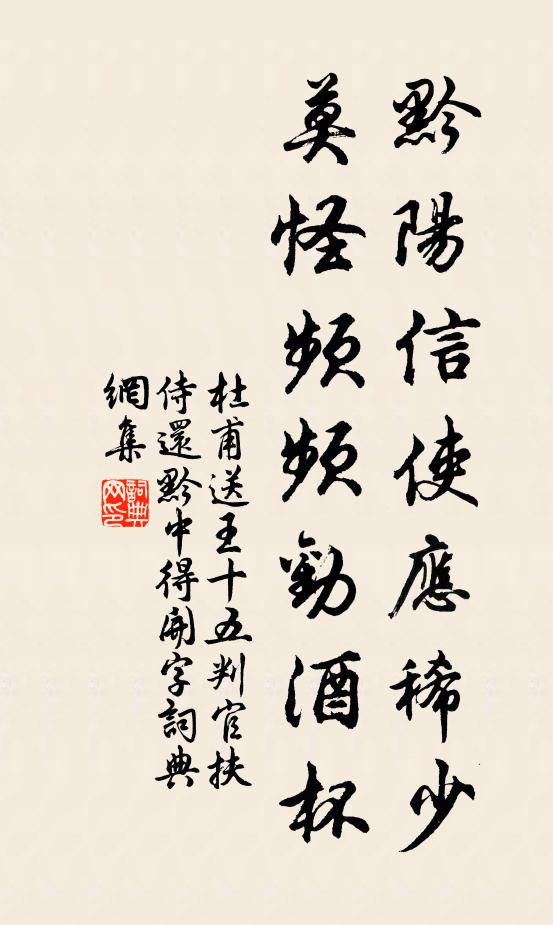 黔陽信使應稀少
莫怪頻頻勸酒杯
杜甫送王十五判官扶
侍還黔中得開字詞典
網集
詞典網印